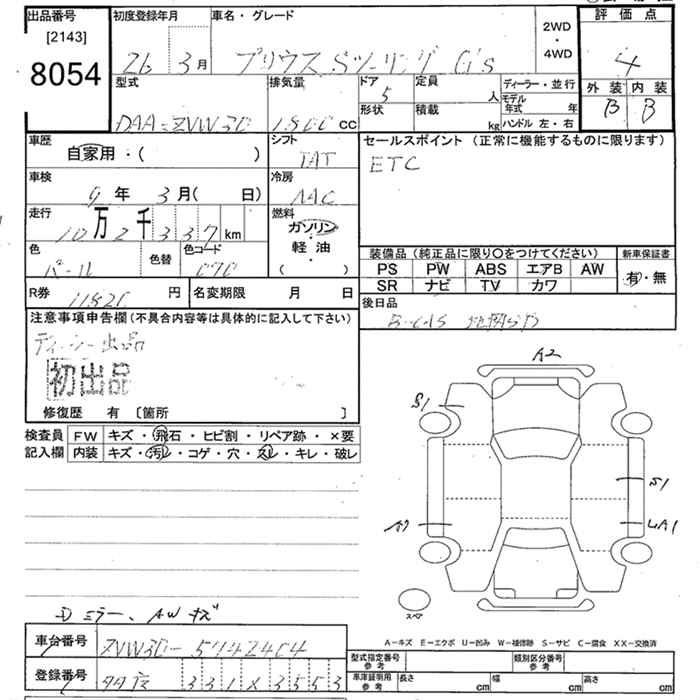 出品番号
[2143]
8054
初度登録年月
26 3月
車名・グレード
プリウス Sツーリング G's
2WD
・
4WD
評価点
4
外装 内装
B B
型式
DAA-ZVW30
排気量
1800 CC
ドア
5
形状
定員
人
積載
kg
ディーラー・並行
モデル年式 年
ハンドル 左・右
車歴
自家用・( )
シフト
車検
9年 3月( 日)
冷房
AAC
走行
10万2千337km
燃料
ガソリン
・
軽油
( )
色
パール
色替
色コード
070
R券
11820円
名変期限 月 日
セールスポイント (正常に機能するものに限ります)
ETC
装備品 (純正品に限り○をつけてください)
PS PW ABS エアB AW
SR ナビ TV カワ
新車保証書
有・無
後日品
注意事項申告欄 (不具合内容等は具体的に記入して下さい)
ディーラー出品
初出品
修復歴 有 〔箇所 〕
検査員
記入欄
FW キズ・飛石・ヒビ割・リペア跡・×要
内装 キズ・汚レ・コゲ・穴・スレ・キレ・破レ
A2
S1
S1
スペア
A-キズ E-エクボ U-凹み W-補修跡 S-サビ C-腐食 XX-交換済
車台番号
ZVW30-5742404
登録番号
331X3553
型式指定番号
参考
類別区分番号
参考
車庫証明用
参考
長さ cm
幅 cm
高さ cm